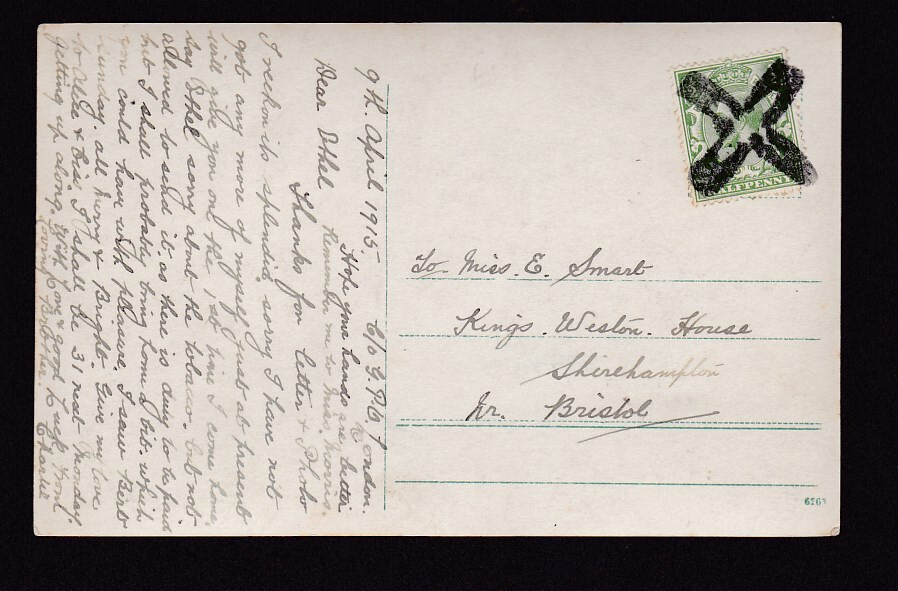 9th April 1915 C/o G.P.O London
Hope your hands are better
Remember me to Miss Morris.
Dear Ethel
Thanks for letter & Photo
I reckon its splendid, sorry I have not
got any more of myself just at present
will give you one the 1st time I come home.
say Ethel sorry about the tobacco. but not
allowed to send it. as there is duty to be paid
but I shall probably bring home a bit. which
you could have with pleasure, I saw Bert
Sunday. all Merry & Bright. Give my love
to Alice & I shall be 31 next Monday.
getting up along. With love & good luck from
loving Brother. Charlie
HALFPENNY
To Miss. E. Smart
Kings. Weston. House
Shirehampton
Nr. Bristol